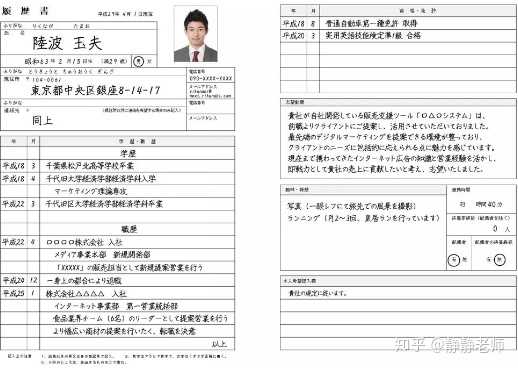 履歴書
平成29年 4月 1日現在
ふりがな
りくなみ たまお
氏名
陸波 玉夫
昭和63年 2月 15日生 (満29歳) 男・女
ふりがな
とうきょうと ちゅうおうく ぎんざ
現住所 〒104-0061
東京都中央区銀座8-14-17
電話番号
090-XXXX-XXXX
メールアドレス
ふりがな
連絡先
同上
電話番号
メールアドレス
年 月 学歴・職歴
学歴
平成18 3 千葉県松戸北高等学校卒業
平成18 4 千代田大学経済学部経済学科入学
マーケティング理論専攻
平成22 3 千代田区大学経済学部経済学科卒業
職歴
平成22 4 〇〇〇〇株式会社 入社
メディア事業本部 新規開拓部
「XXXXX」の販売担当として新規提案営業を行う
平成24 12 一身上の都合により退職
平成25 1 株式会社△△△△ 入社
インターネット事業部 第一営業統括部
食品業界チーム(6名)のリーダーとして提案営業を行う
より幅広い商材の提案を行いたく、転職を決意
以上
年 月 資格・免許
平成18 8 普通自動車第一種免許 取得
平成20 3 実用英語技能検定準1級 合格
志望動機
貴社が自社開発している販売支援ツール「〇△〇システム」は、
前職よりクライアントにご提案し、活用させていただいておりました。
最先端のデジタルマーケティングを提案できる環境が整っており、
クライアントのニーズに包括的に応えられる点に魅力を感じています。
現在まで携わってきたインターネット広告の知識と営業経験を活かし、
即戦力として貴社の売上に貢献したいと考え、志望いたしました。
趣味・特技
写真(一眼レフにて旅先での風景を撮影)
ランニング(月2〜3回、皇居ランを行っています)
通勤時間
約 時間40分
0 人
配偶者
有・無
配偶者の扶養義務
有・無
本人希望記入欄
貴社の規定に従います。
知乎 @静静老师